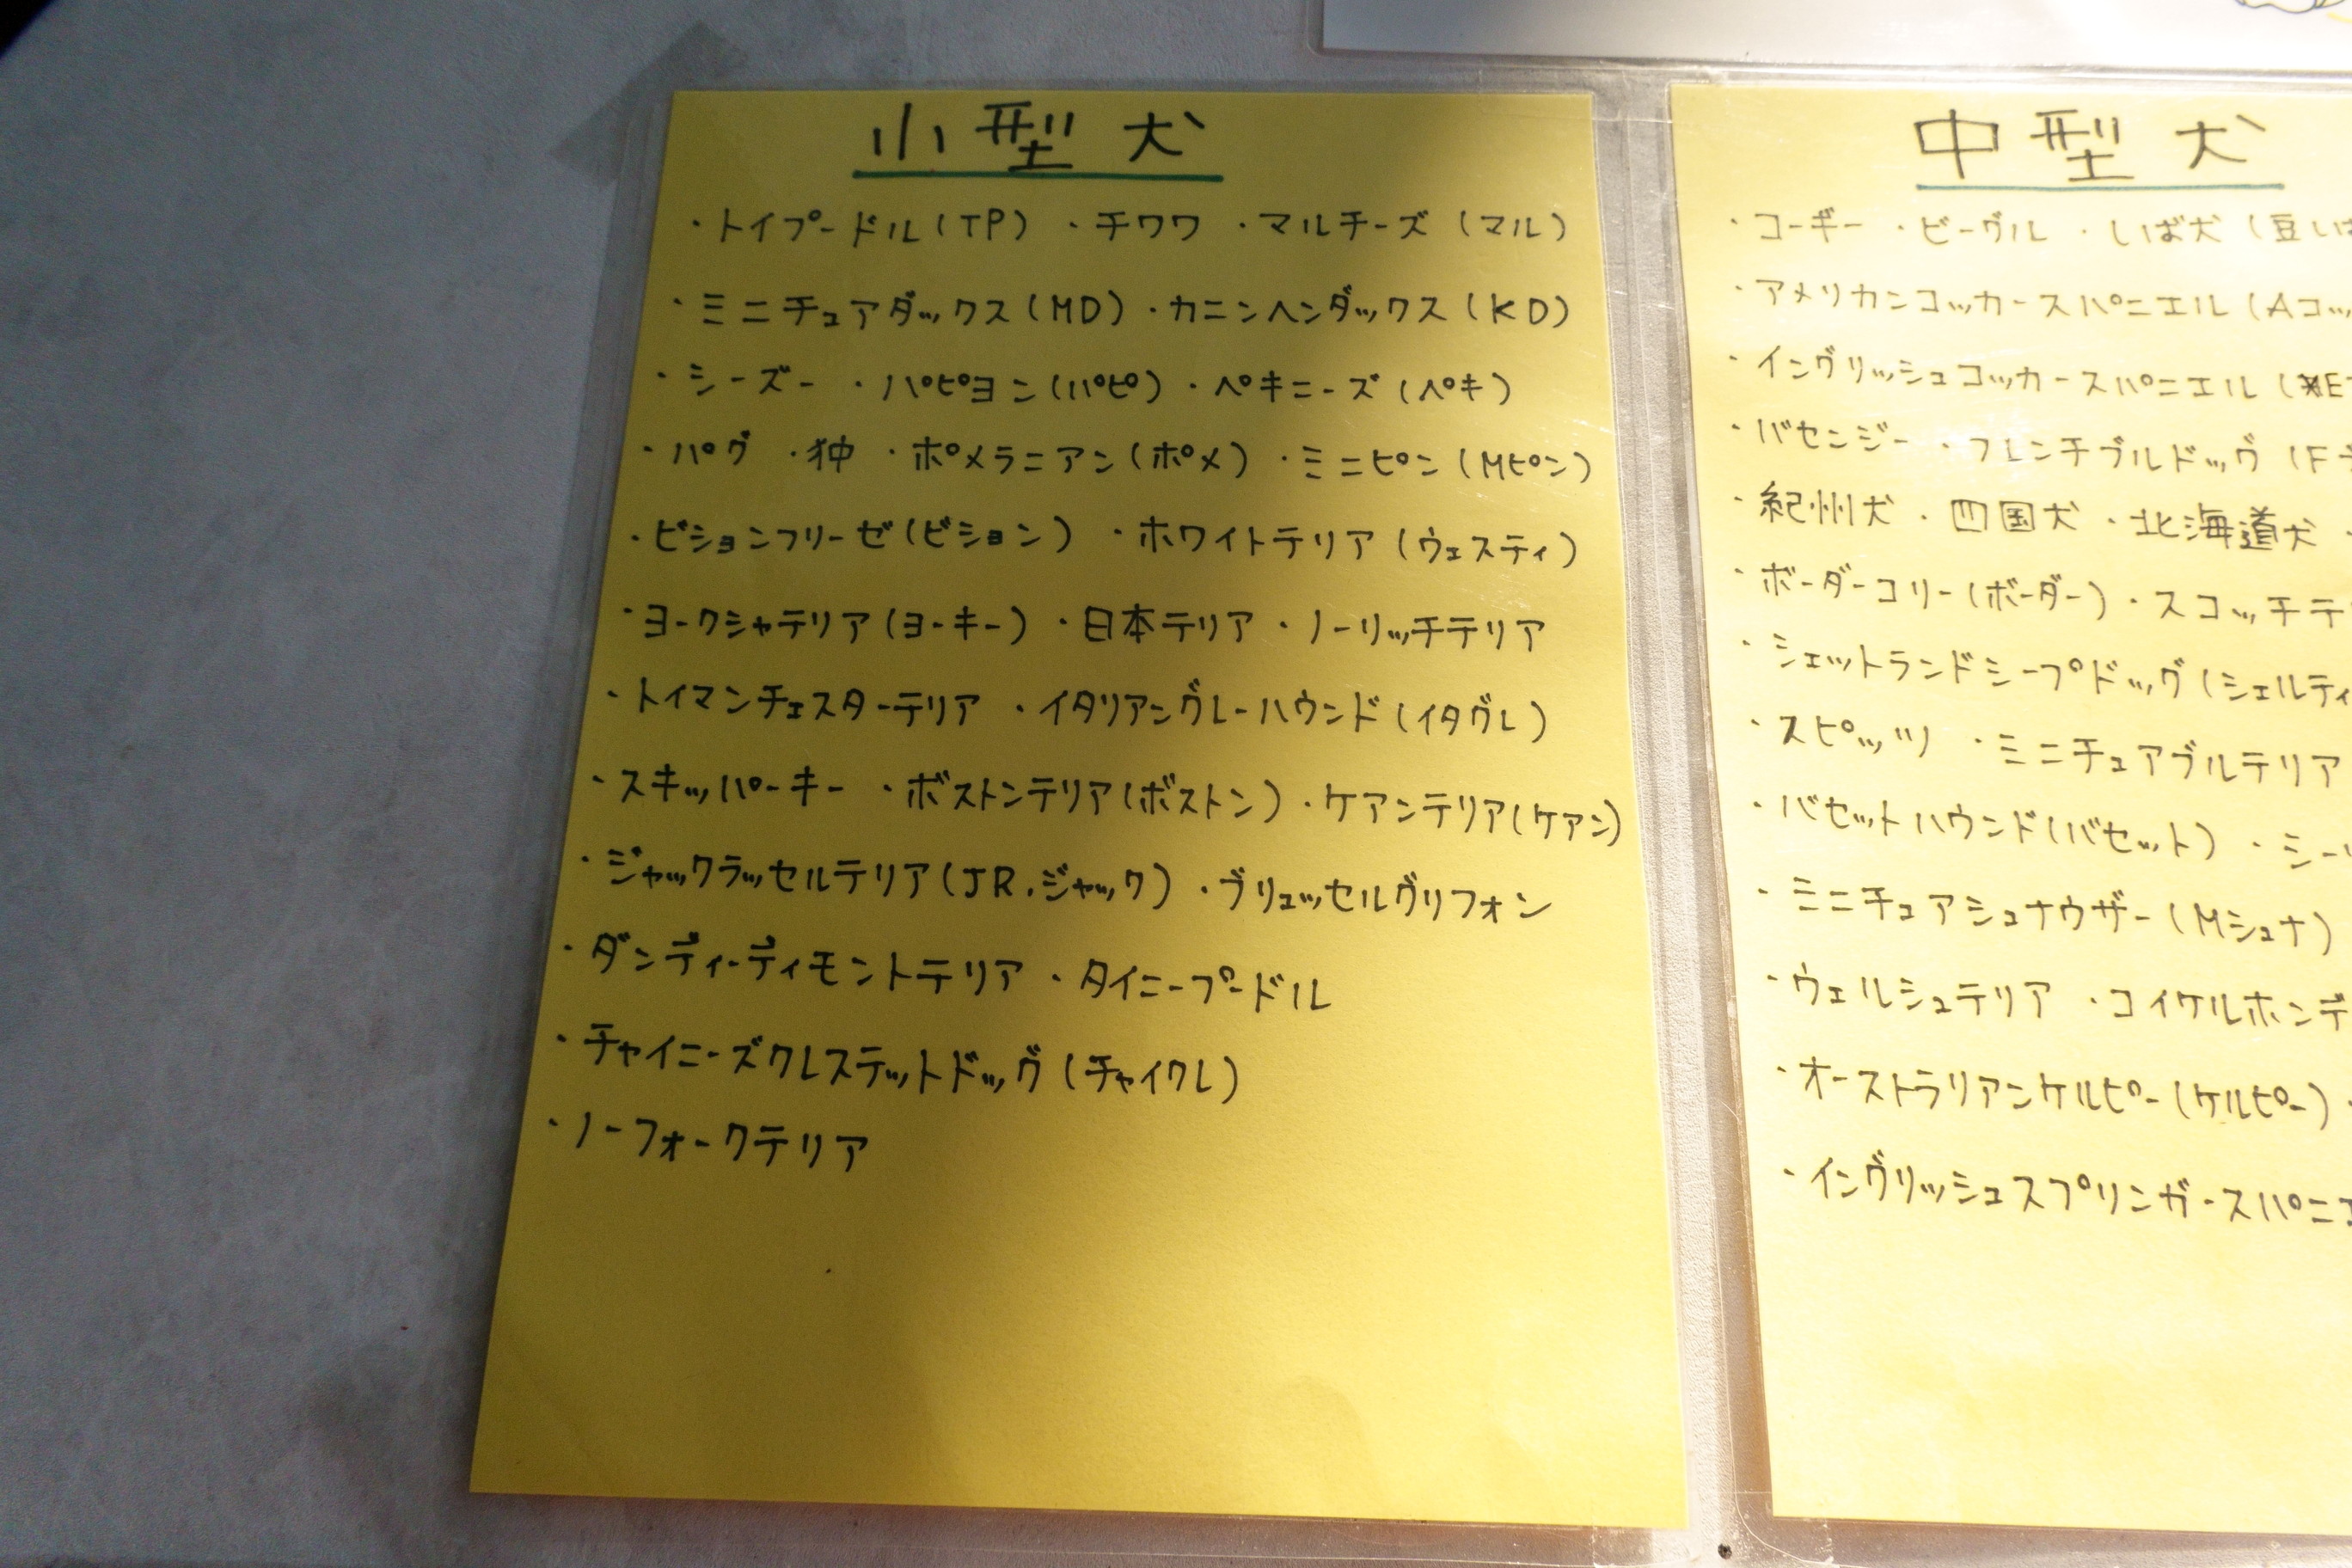 小型犬
・トイプードル(TP) ・チワワ ・マルチーズ (マル)
・ミニチュアダックス(MD) ・カニンヘンダックス(KD)
・シーズー ・パピヨン(パピ) ・ペキニーズ(ペキ)
・パグ ・狆 ・ポメラニアン(ポメ) ・ミニピン(Mピン)
・ビションフリーゼ(ビション) ・ホワイトテリア(ウェスティ)
・ヨークシャテリア(ヨーキー) ・日本テリア ・ノーリッチテリア
・トイマンチェスターテリア ・イタリアングレーハウンド(イタグレ)
・スキッパーキー ・ボストンテリア(ボストン) ・ケアンテリア(ケアン)
・ジャックラッセルテリア(JR.ジャック) ・ブリュッセルグリフォン
・ダンディーディモントテリア ・タイニープードル
・チャイニーズクレステットドッグ(チャイクレ)
・ノーフォークテリア
中型犬
・コーギー ・ビーグル ・しば犬 (豆しば
・アメリカンコッカースパニエル(Aコッ
・イングリッシュコッカースパニエル(E
・バセンジー ・フレンチブルドッグ (F
・紀州犬 ・四国犬 ・北海道犬 ・
・ボーダーコリー(ボーダー) ・スコッチテ
・シェットランドシープドッグ(シェルティ
・スピッツ ・ミニチュアブルテリア
・バセットハウンド(バセット) ・シー
・ミニチュアシュナウザー(Mシュナ)
・ウェルシュテリア ・コイケルホンデ
・オーストラリアンケルピー(ケルピー) ・
・イングリッシュスプリンガースパニエ